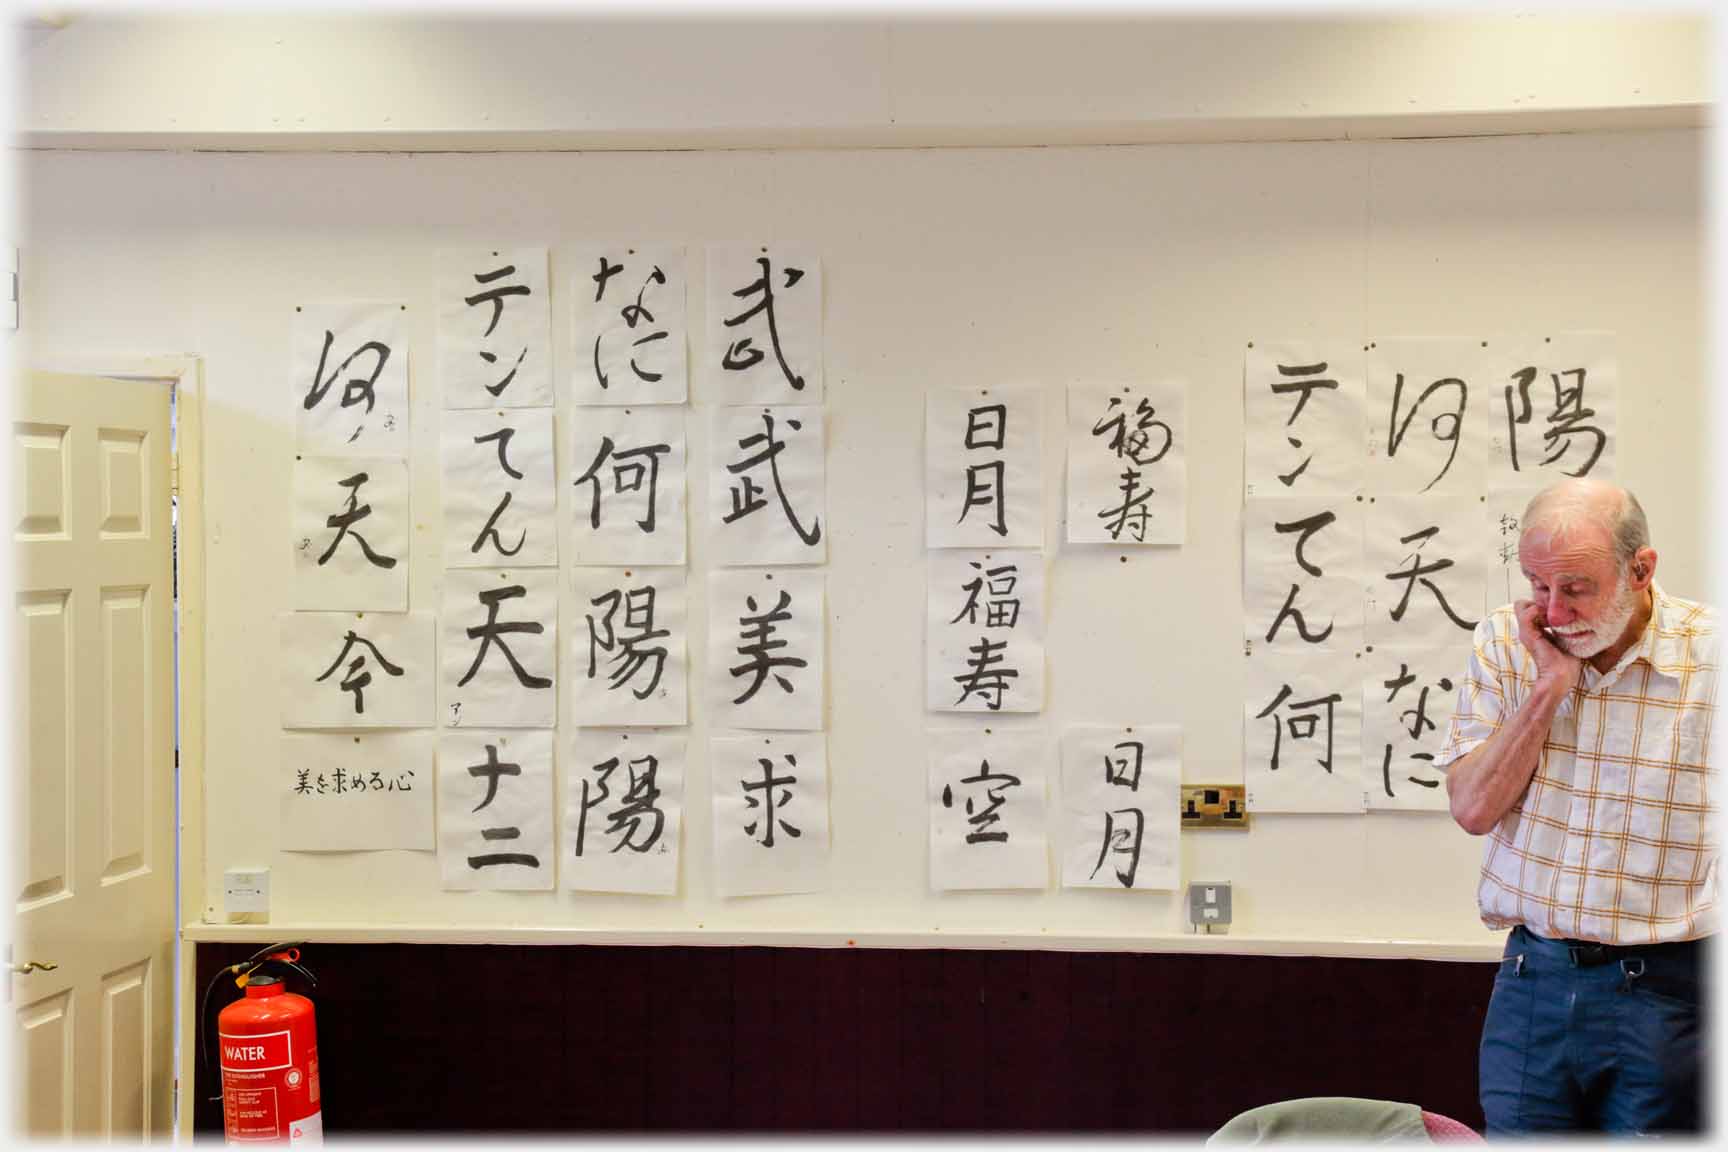 何
天
今
美を求める心
テン
てん
天
アン
ナニ
なに
何
陽
陽
武
武
美
求
日月
福寿
空
福寿
日月
テン
てん
何
何
天
なに
陽
WATER